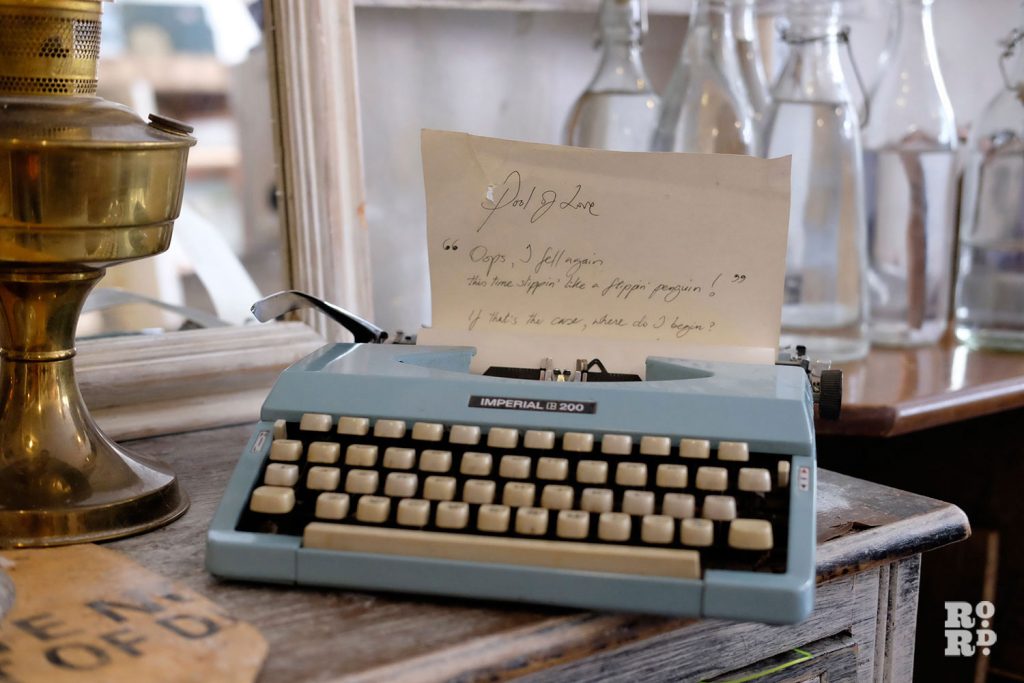 Pool of Love
“ Oops, I fell again
this time slippin' like a flippin' penguin! ”
If that's the case, where do I begin?
IMPERIAL 200
EN.
OF D
RO
RD.